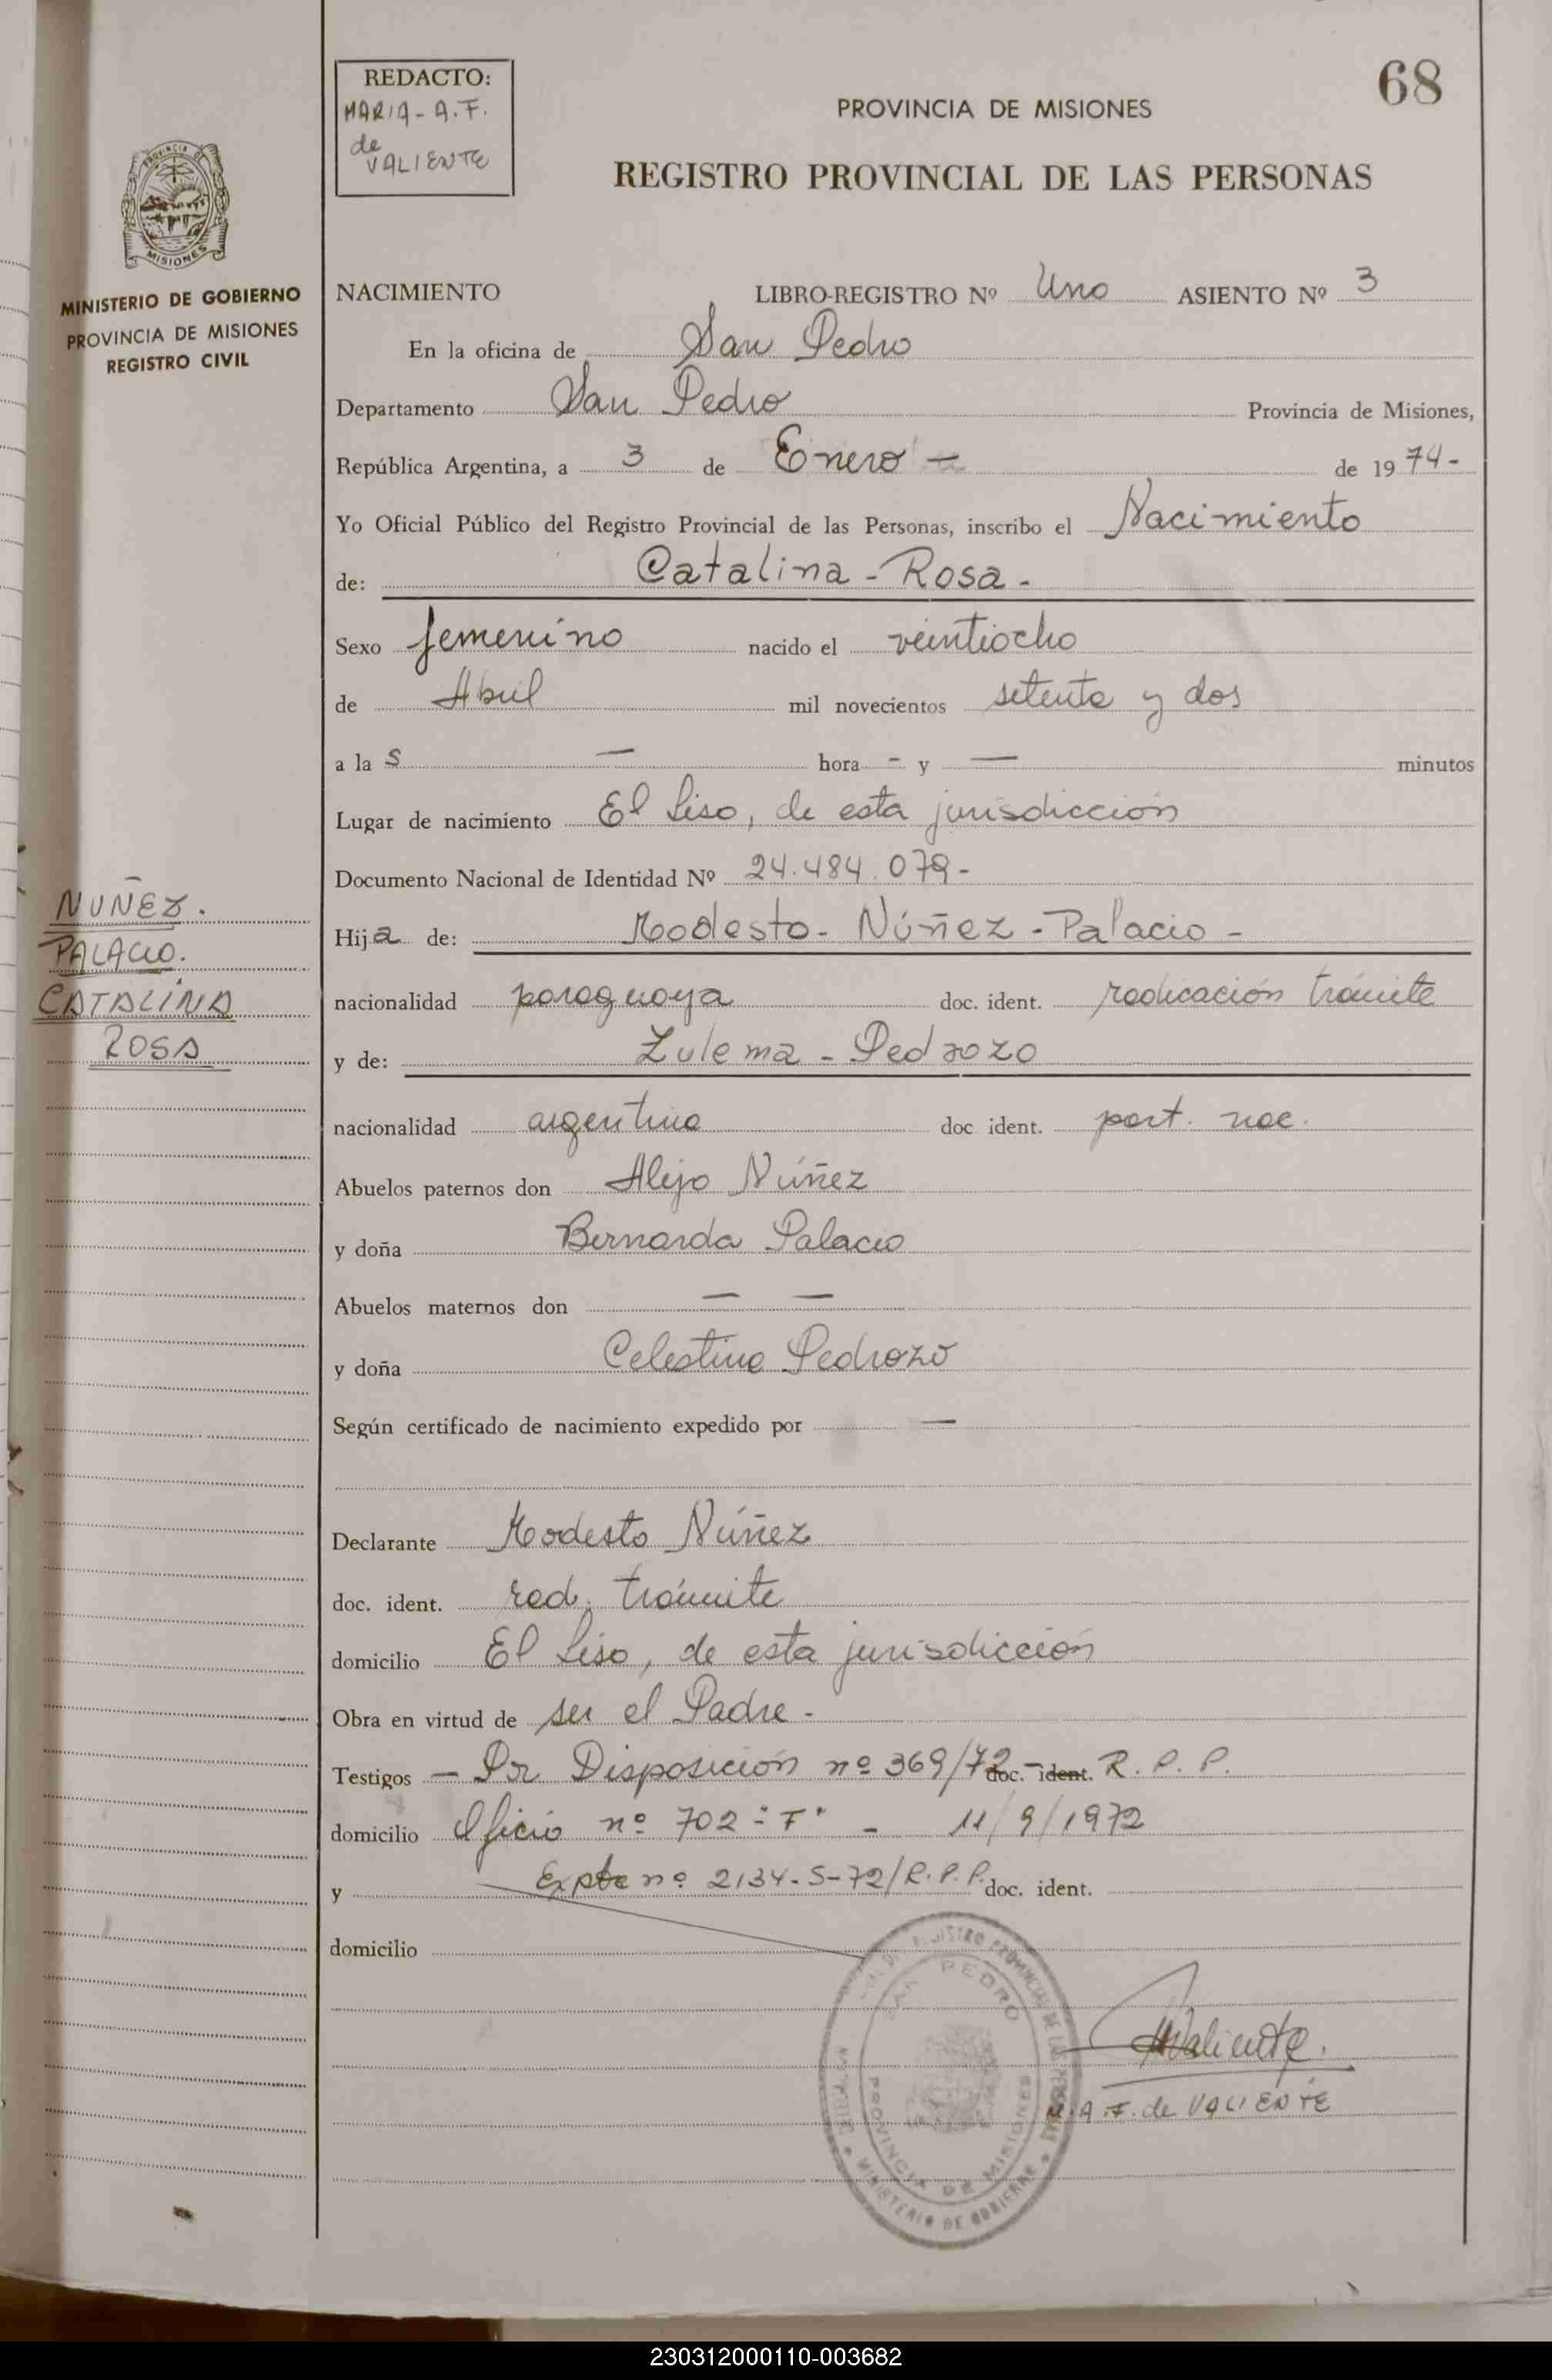 68
REDACTO:
MARIA - A. F.
de
VALIENTE
PROVINCIA DE MISIONES
REGISTRO PROVINCIAL DE LAS PERSONAS
PROVINCIA DE
MISIONES
MINISTERIO DE GOBIERNO
PROVINCIA DE MISIONES
REGISTRO CIVIL
NACIMIENTO LIBRO-REGISTRO Nº Uno ASIENTO Nº 3
En la oficina de San Pedro
Departamento San Pedro Provincia de Misiones,
República Argentina, a 3 de Enero - de 19 74-
Yo Oficial Público del Registro Provincial de las Personas, inscribo el Nacimiento
de: Catalina - Rosa -
Sexo femenino nacido el veintiocho
de Abril mil novecientos setenta y dos
a la s — hora - y — minutos
Lugar de nacimiento El Liso, de esta jurisdicción
Documento Nacional de Identidad Nº 24.484.079-
NUÑEZ.
PALACIO.
CATALINA
ROSA
Hija de: Modesto - Núñez - Palacio -
nacionalidad paraguaya doc. ident. radicación trámite
y de: Zulema - Pedrozo
nacionalidad argentina doc. ident. part. nac.
Abuelos paternos don Alejo Núñez
y doña Bernarda Palacio
Abuelos maternos don — —
y doña Celestina Pedrozo
Según certificado de nacimiento expedido por —
Declarante Modesto Núñez
doc. ident. rad. trámite
domicilio El Liso, de esta jurisdicción
Obra en virtud de ser el Padre -
Testigos — Por Disposición nº 369/72 - doc. ident. R. P. P.
domicilio Oficio nº 702 "F" - 11/9/1972
y Expte nº 2134-S-72/R.P.P. doc. ident.
domicilio
SAN PEDRO
PROVINCIA DE MISIONES
MINISTERIO DE GOBIERNO
Valiente.
M. A. F. de VALIENTE
230312000110-003682